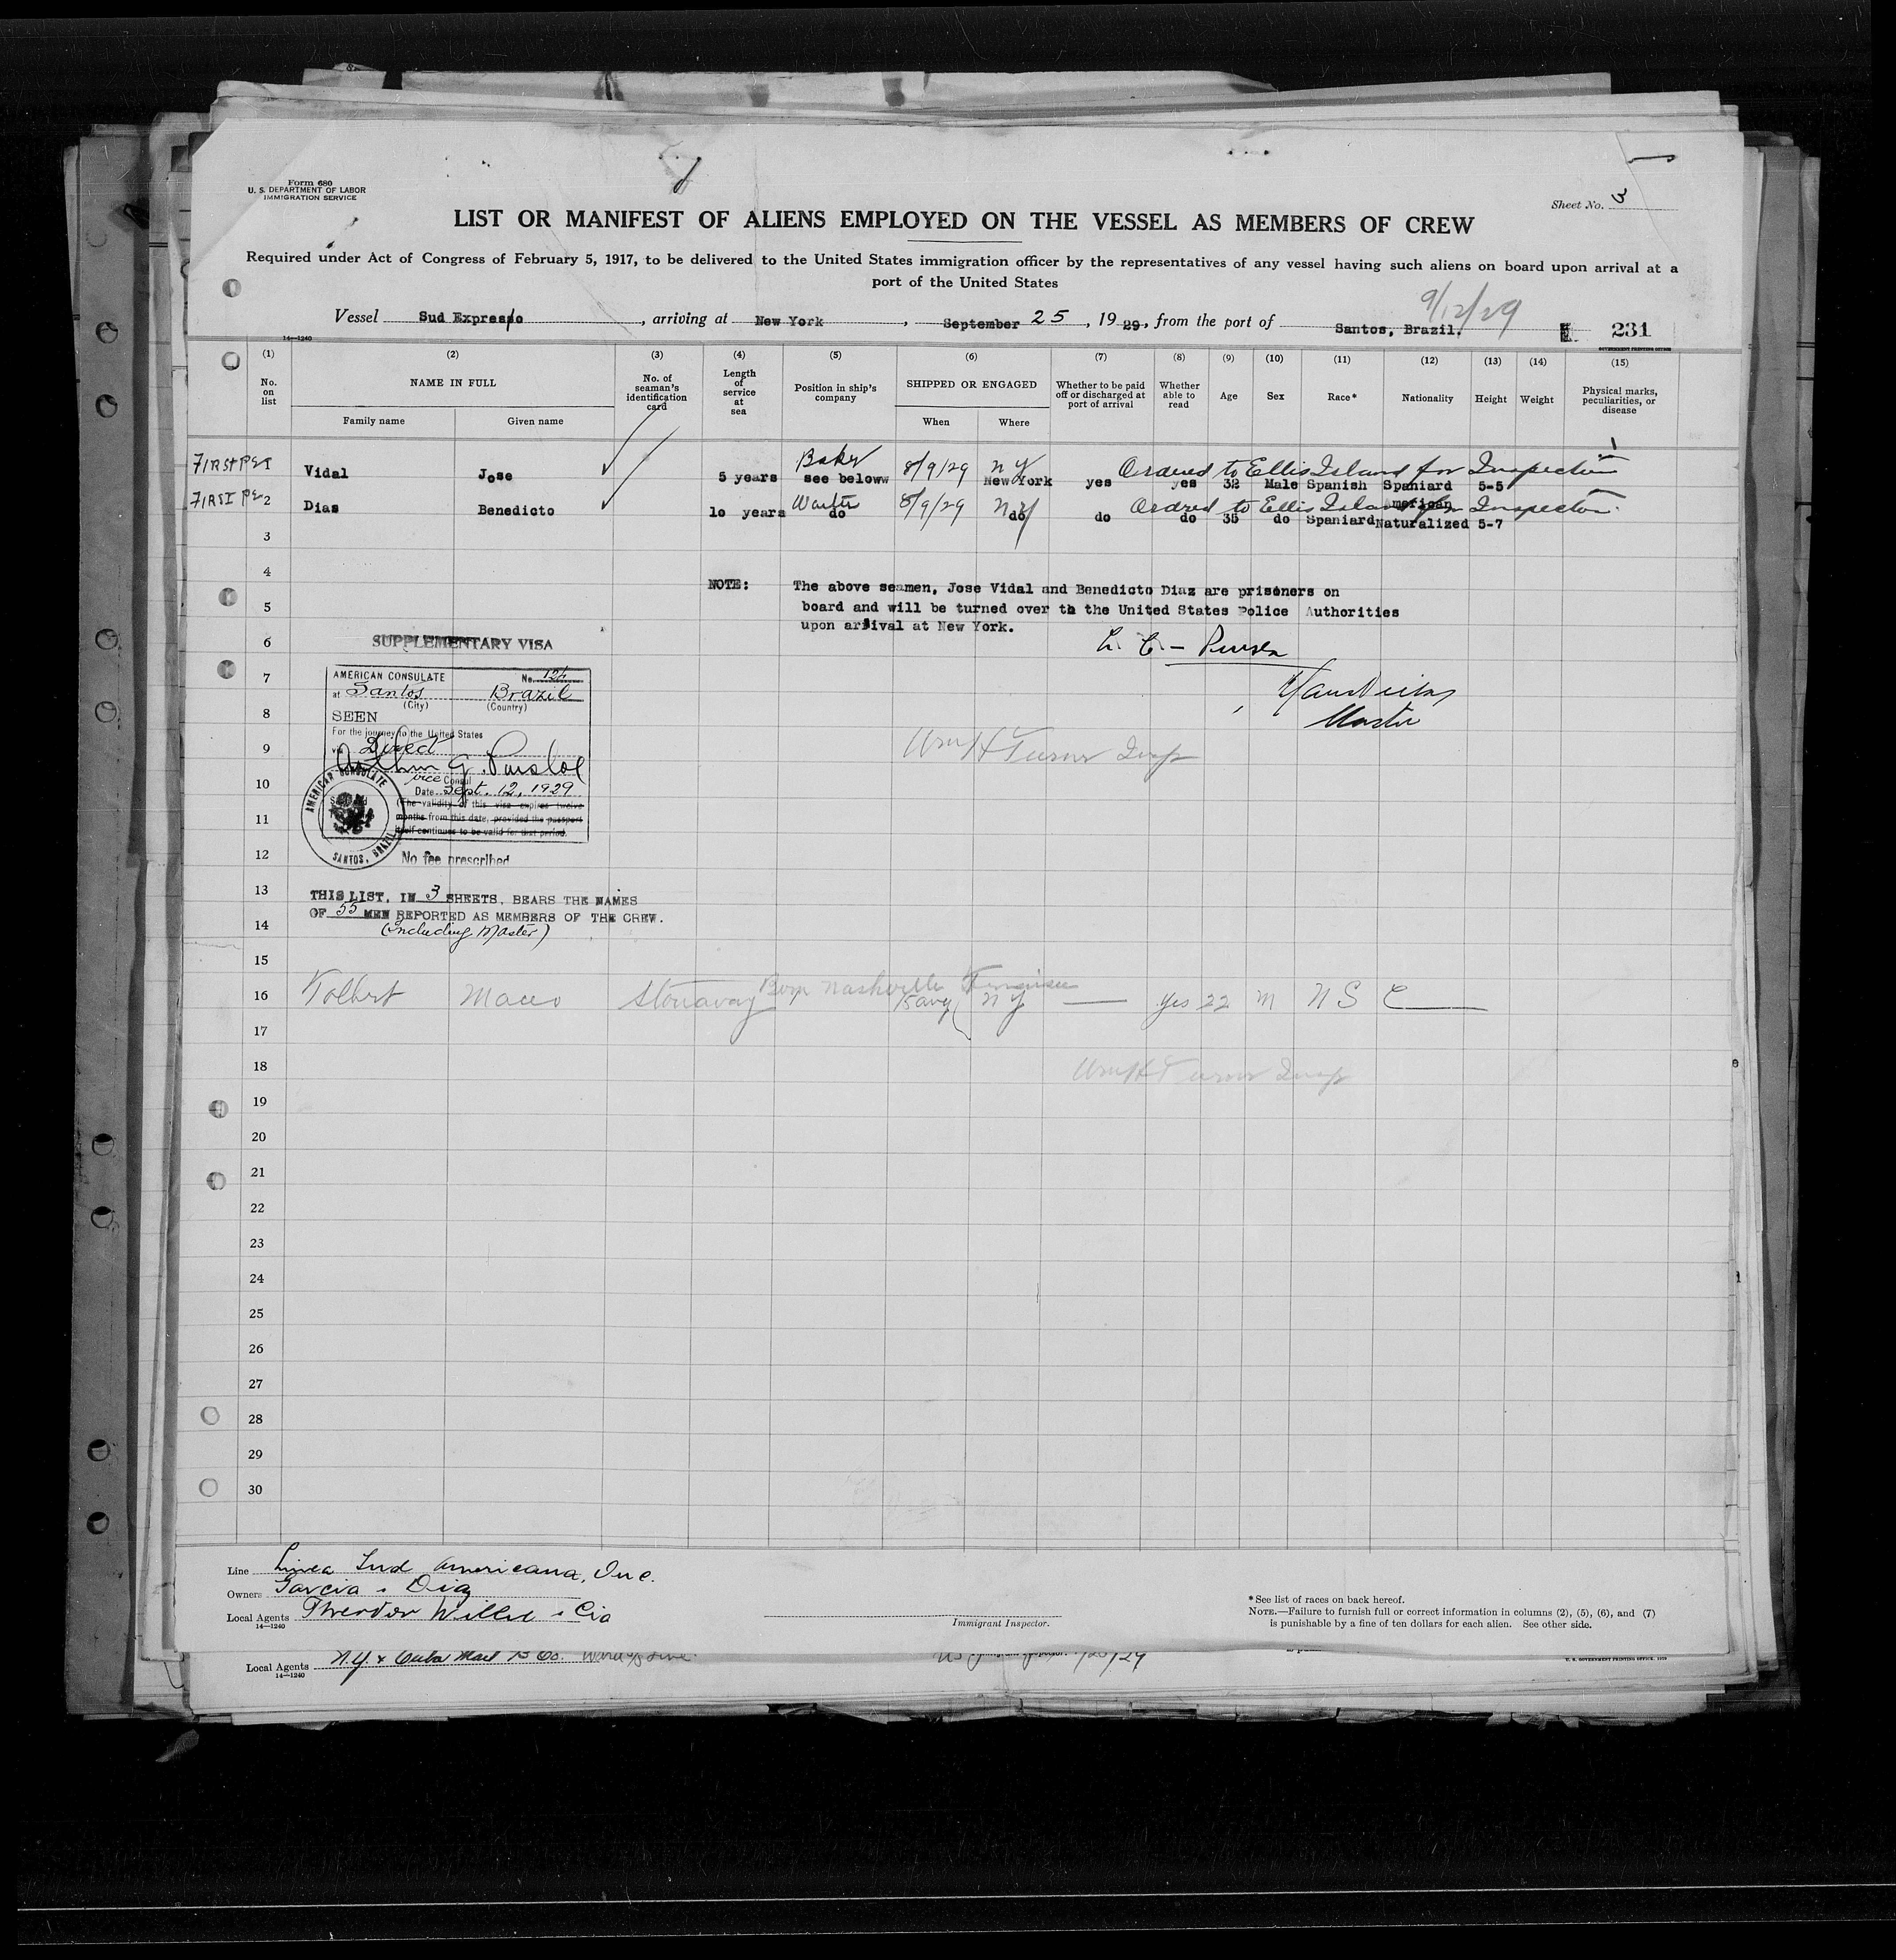 Form 680
U. S. DEPARTMENT OF LABOR
IMMIGRATION SERVICE
Sheet No. 3
LIST OR MANIFEST OF ALIENS EMPLOYED ON THE VESSEL AS MEMBERS OF CREW
Required under Act of Congress of February 5, 1917, to be delivered to the United States immigration officer by the representatives of any vessel having such aliens on board upon arrival at a
port of the United States
9/12/29
Vessel Sud Expreso, arriving at New York, September 25, 1929, from the port of Santos, Brazil. 231
14—1240
GOVERNMENT PRINTING OFFICE
(1) (2) (3) (4) (5) (6) (7) (8) (9) (10) (11) (12) (13) (14) (15)
No. on list
NAME IN FULL
Family name Given name
No. of seaman's identification card
Length of service at sea
Position in ship's company
SHIPPED OR ENGAGED
When Where
Whether to be paid off or discharged at port of arrival
Whether able to read
Age
Sex
Race*
Nationality
Height
Weight
Physical marks, peculiarities, or disease
Baker 8/9/29 N Y Ordered to Ellis Island for Inspection
Vidal Jose 5 years see beloww New York yes yes 32 Male Spanish Spaniard 5-5
Waiter 8/9/29 N Y Ordred to Ellis Island for Inspection
American
2 Dias Benedicto lo years do do do do 35 do Spaniard Naturalized 5-7
3
4
NOTE: The above seamen, Jose Vidal and Benedicto Diaz are prisoners on
5
board and will be turned over to the United States Police Authorities
upon arrival at New York.
6
SUPPLEMENTARY VISA
L. C. — Purser
7
AMERICAN CONSULATE No. 124
at Santos Brazil
(City) (Country)
Master
8
SEEN
For the journey to the United States
via Direct
9
Wm H Turner Insp
Arthur G. Parsloe
vice Consul
10
Date Sept. 12, 1929
(The validity of this visa expires twelve
11
months from this date, provided the passport
itself continues to be valid for that period.
AMERICAN CONSULATE
SANTOS, BRAZIL
12
No fee prescribed
13
THIS LIST, IN 3 SHEETS, BEARS THE NAMES
OF 55 MEN REPORTED AS MEMBERS OF THE CREW.
14
(including Master)
15
Born Nashville Tennessee
16 Tolbert Maceo Stowaway N Y — yes 22 M N S C
17
18
Wm H Turner Insp
19
20
21
22
23
24
25
26
27
28
29
30
Line Linea Sud Americana, Inc.
Owners Garcia & Diaz
Local Agents Theodor Wille & Cia
14—1240
Immigrant Inspector.
* See list of races on back hereof.
NOTE.—Failure to furnish full or correct information in columns (2), (5), (6), and (7)
is punishable by a fine of ten dollars for each alien. See other side.
Local Agents N.Y. & Cuba Mail SS Co. Ward Line
14—1240
U. S. GOVERNMENT PRINTING OFFICE